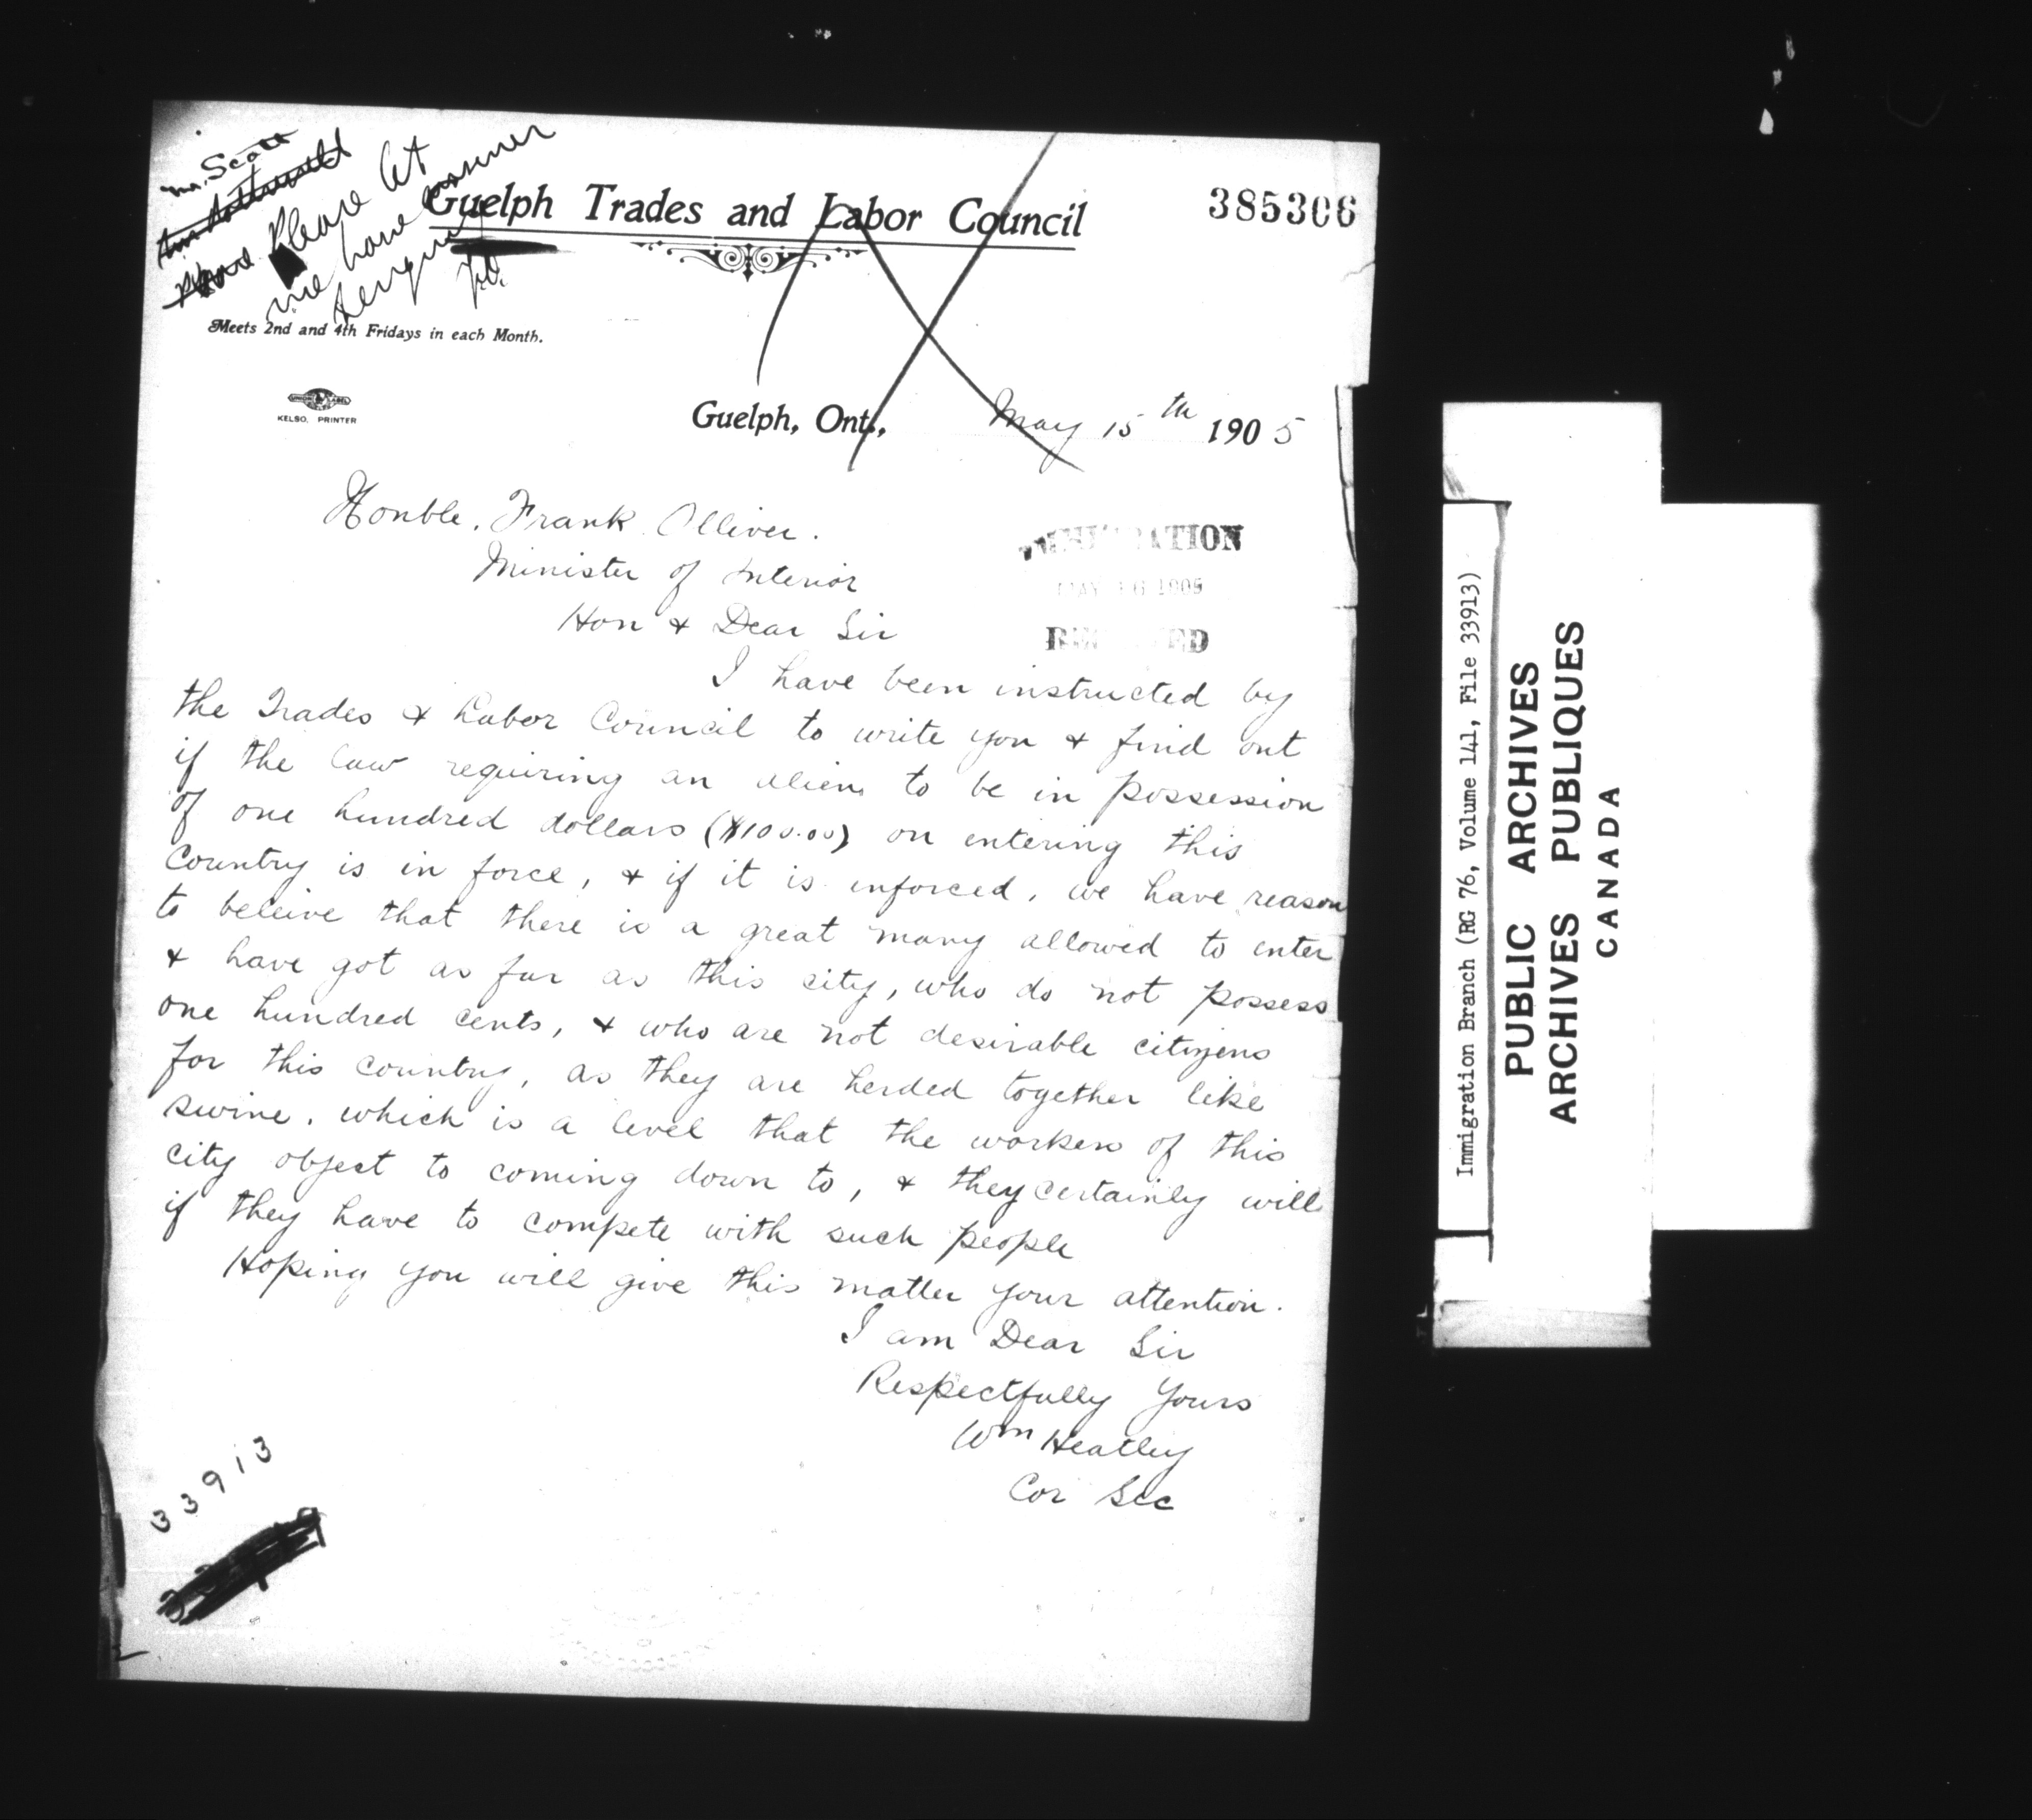 Mr. Scott
Please let
me have answer
F.O.
Guelph Trades and Labor Council
385306
Meets 2nd and 4th Fridays in each Month.
UNION LABEL
KELSO, PRINTER
Guelph, Ont., May 15th 1905
Honble. Frank Olliver.
Minister of Interior
Hon & Dear Sir
IMMIGRATION
MAY 16 1905
RECEIVED
I have been instructed by
the Trades & Labor Council to write you & find out
if the law requiring an alien to be in possession
of one hundred dollars ($100.00) on entering this
Country is in force, & if it is enforced, we have reason
to beleive that there is a great many allowed to enter
& have got as far as this city, who do not possess
one hundred cents, & who are not desirable citizens
for this country, as they are herded together like
swine. which is a level that the workers of this
city object to coming down to, & they certainly will
if they have to compete with such people
Hoping you will give this matter your attention.
I am Dear Sir
Respectfully Yours
Wm Heatley
Cor Sec
33913
Immigration Branch (RG 76, Volume 141, File 33913)
PUBLIC ARCHIVES
ARCHIVES PUBLIQUES
CANADA